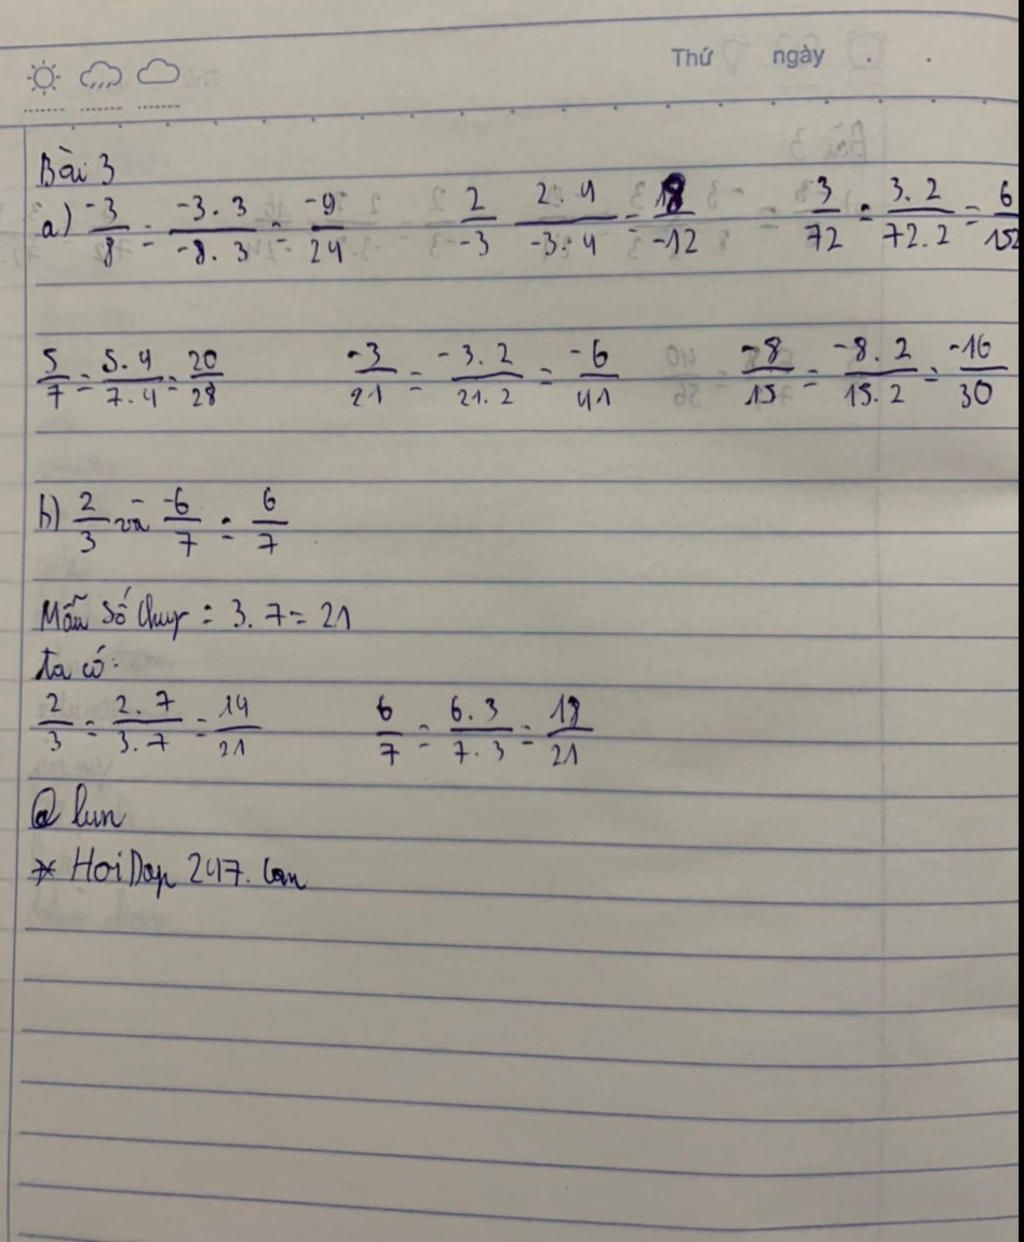 Thứ ngày
Bài 3
a) -3/8 = -3.3/-8.3 = -9/24 2/-3 2.4/-3.4 = 8/-12 3/72 = 3.2/72.2 = 6/152
5/7 = 5.4/7.4 = 20/28 -3/21 = -3.2/21.2 = -6/41 -8/15 = -8.2/15.2 = -16/30
b) 2/3 và -6/-7 = 6/7
Mẫu số chung = 3.7 = 21
Ta có:
2/3 = 2.7/3.7 = 14/21 6/7 = 6.3/7.3 = 18/21
@ lun
* HoiDap 247.com